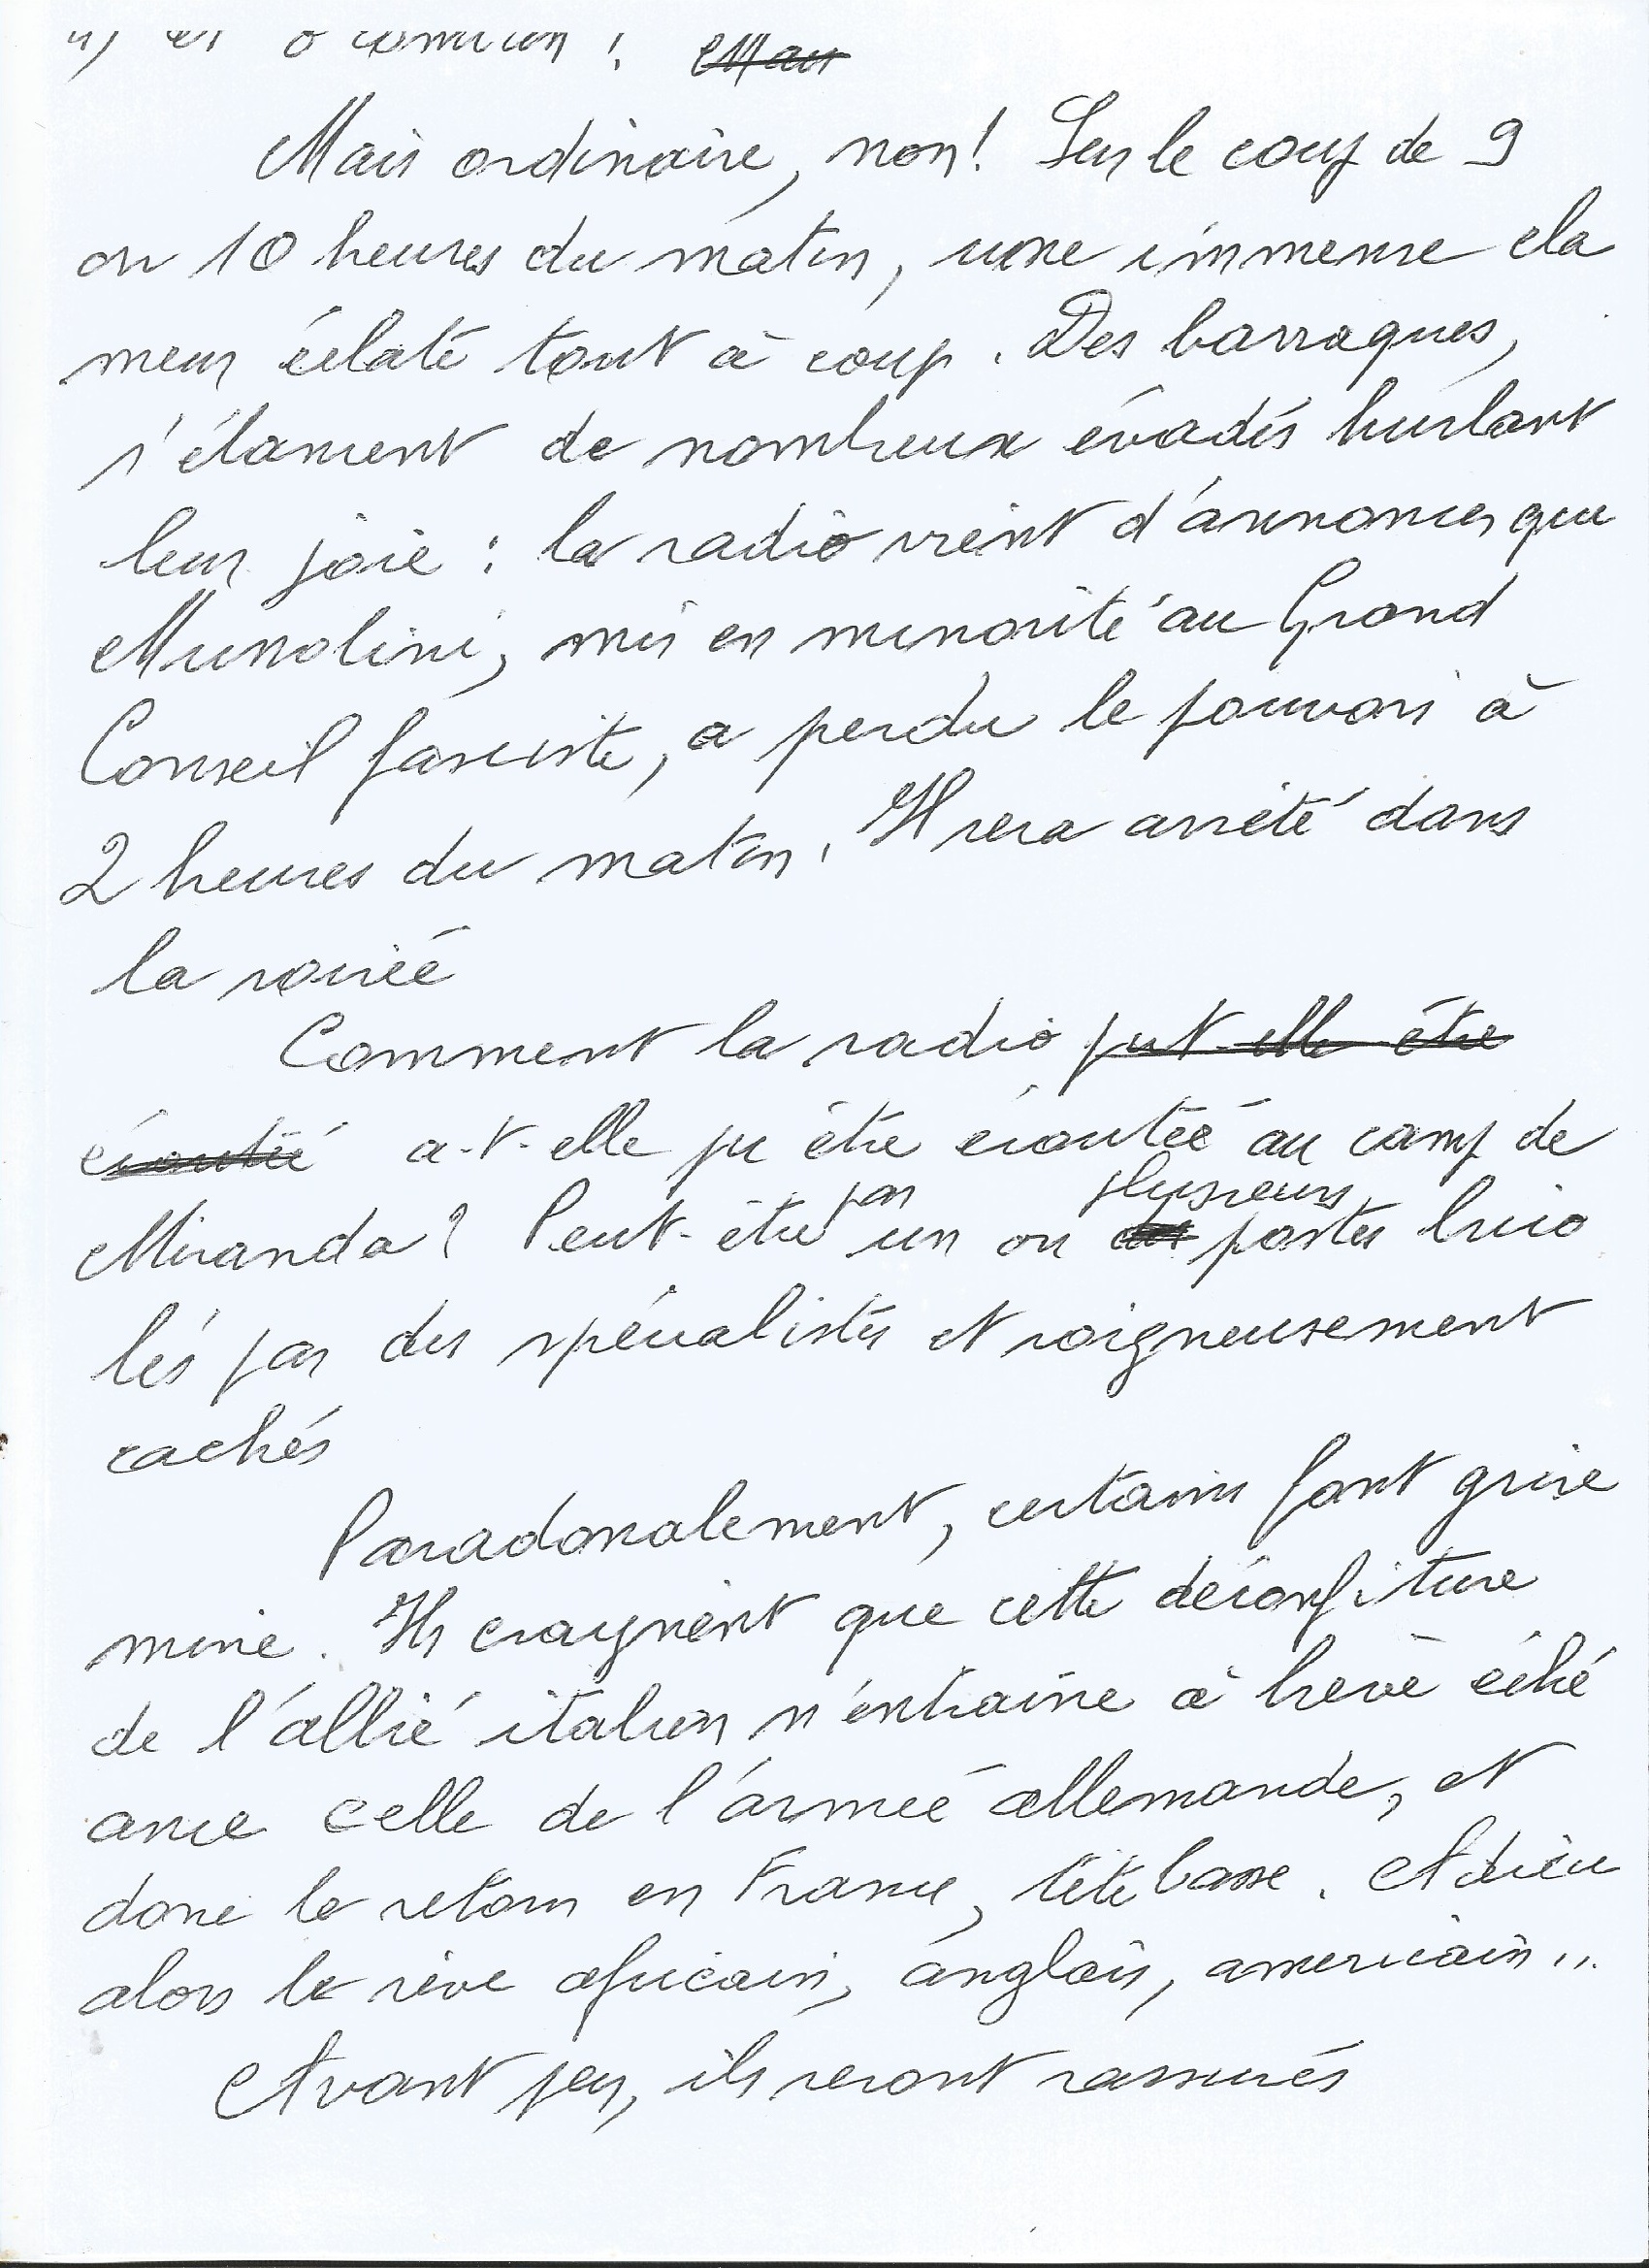 Mais
Mais ordinaire, non! Sur le coup de 9
ou 10 heures du matin, une immense cla
meur éclate tout à coup. Des barraques,
s'élancent de nombreux évadés hurlant
leur joie : la radio vient d'annoncer que
Mussolini, mis en minorité au Grand
Conseil fasciste, a perdu le pouvoir à
2 heures du matin. Il sera arrêté dans
la soirée
Comment la radio put-elle être
écoutée a-t-elle pu être écoutée au camp de
Miranda? Peut-être par un ou plusieurs postes brico
lés par des spécialistes et soigneusement
cachés
Paradoxalement, certains font grise
mine. Ils craignent que cette déconfiture
de l'allié italien n'entraine à brève éché
ance celle de l'armée allemande, et
donc le retour en France, tête basse. Adieu
alors le rêve africain, anglais, americain...
Avant peu, ils seront rassurés